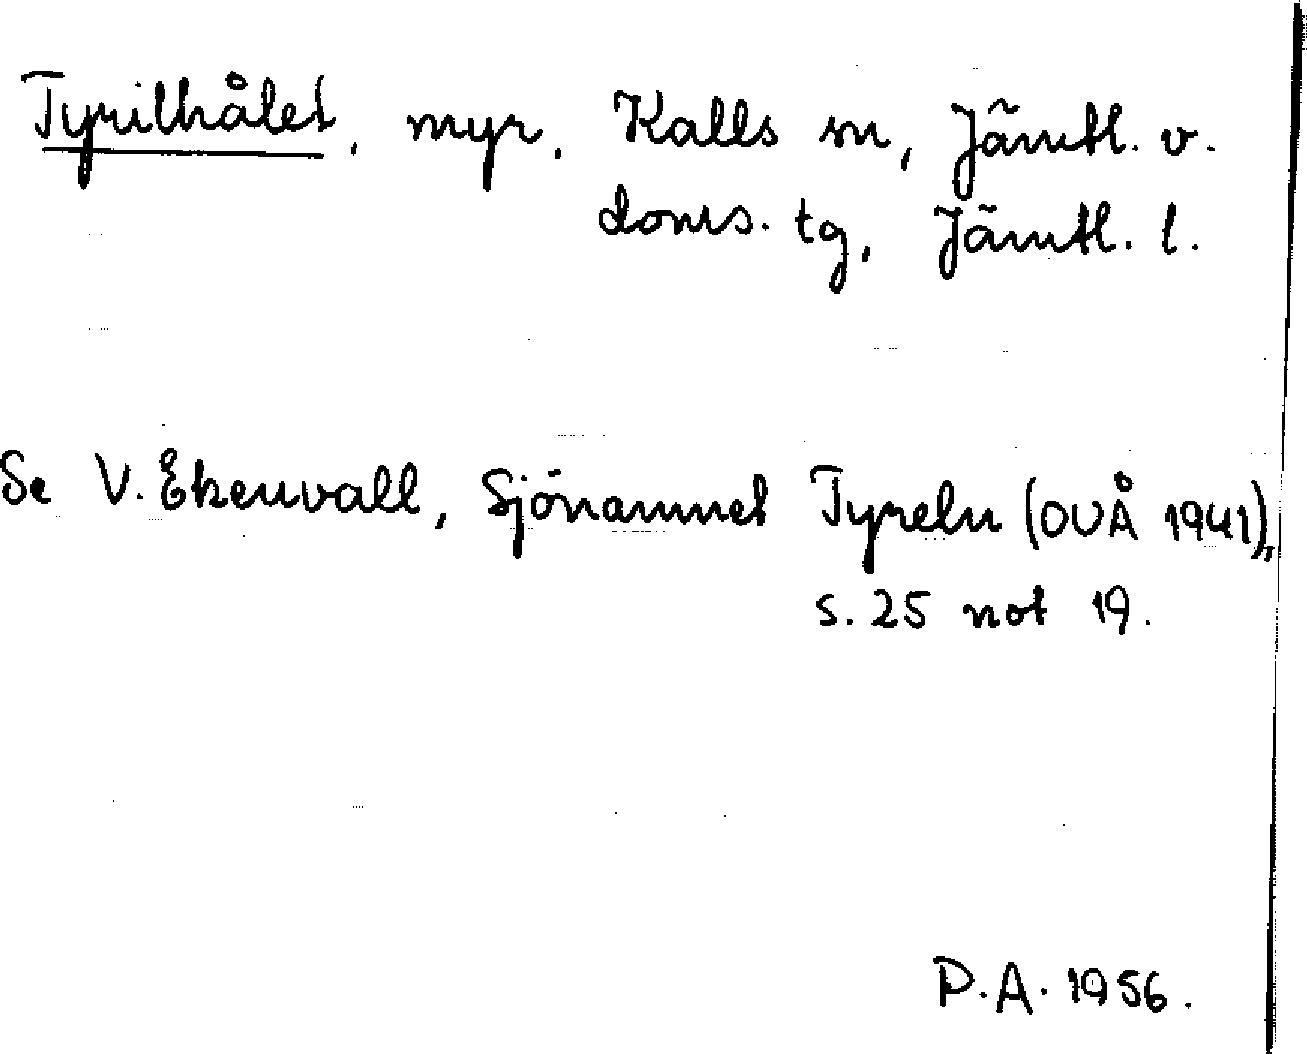 Tyrilhålet, myr, Kalls sn, Jämtl. v.
doms. tg, Jämtl. l.
Se V. Ekenvall, Sjönamnet Tyreln (OUÅ 1941),
s. 25 not 19.
P.A. 1956.